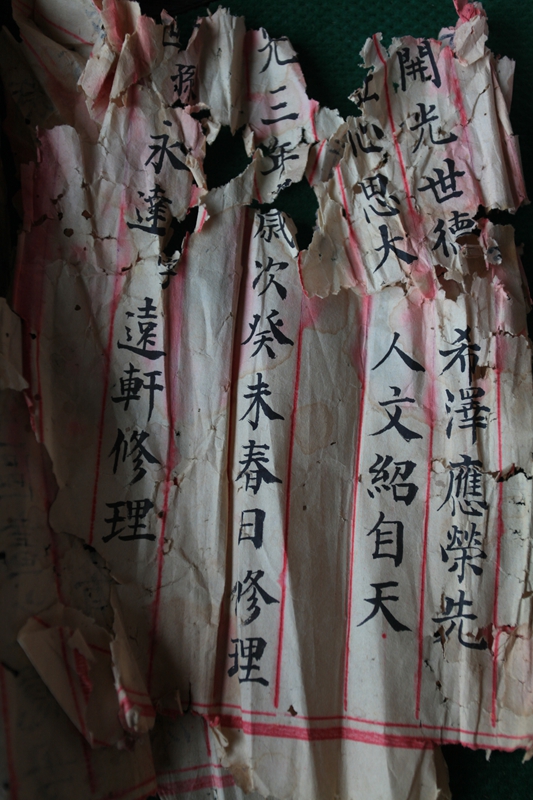 開光世德希澤應榮先
沁思大人文紹自天
九三年歲次癸未春日修理
永達遠軒修理